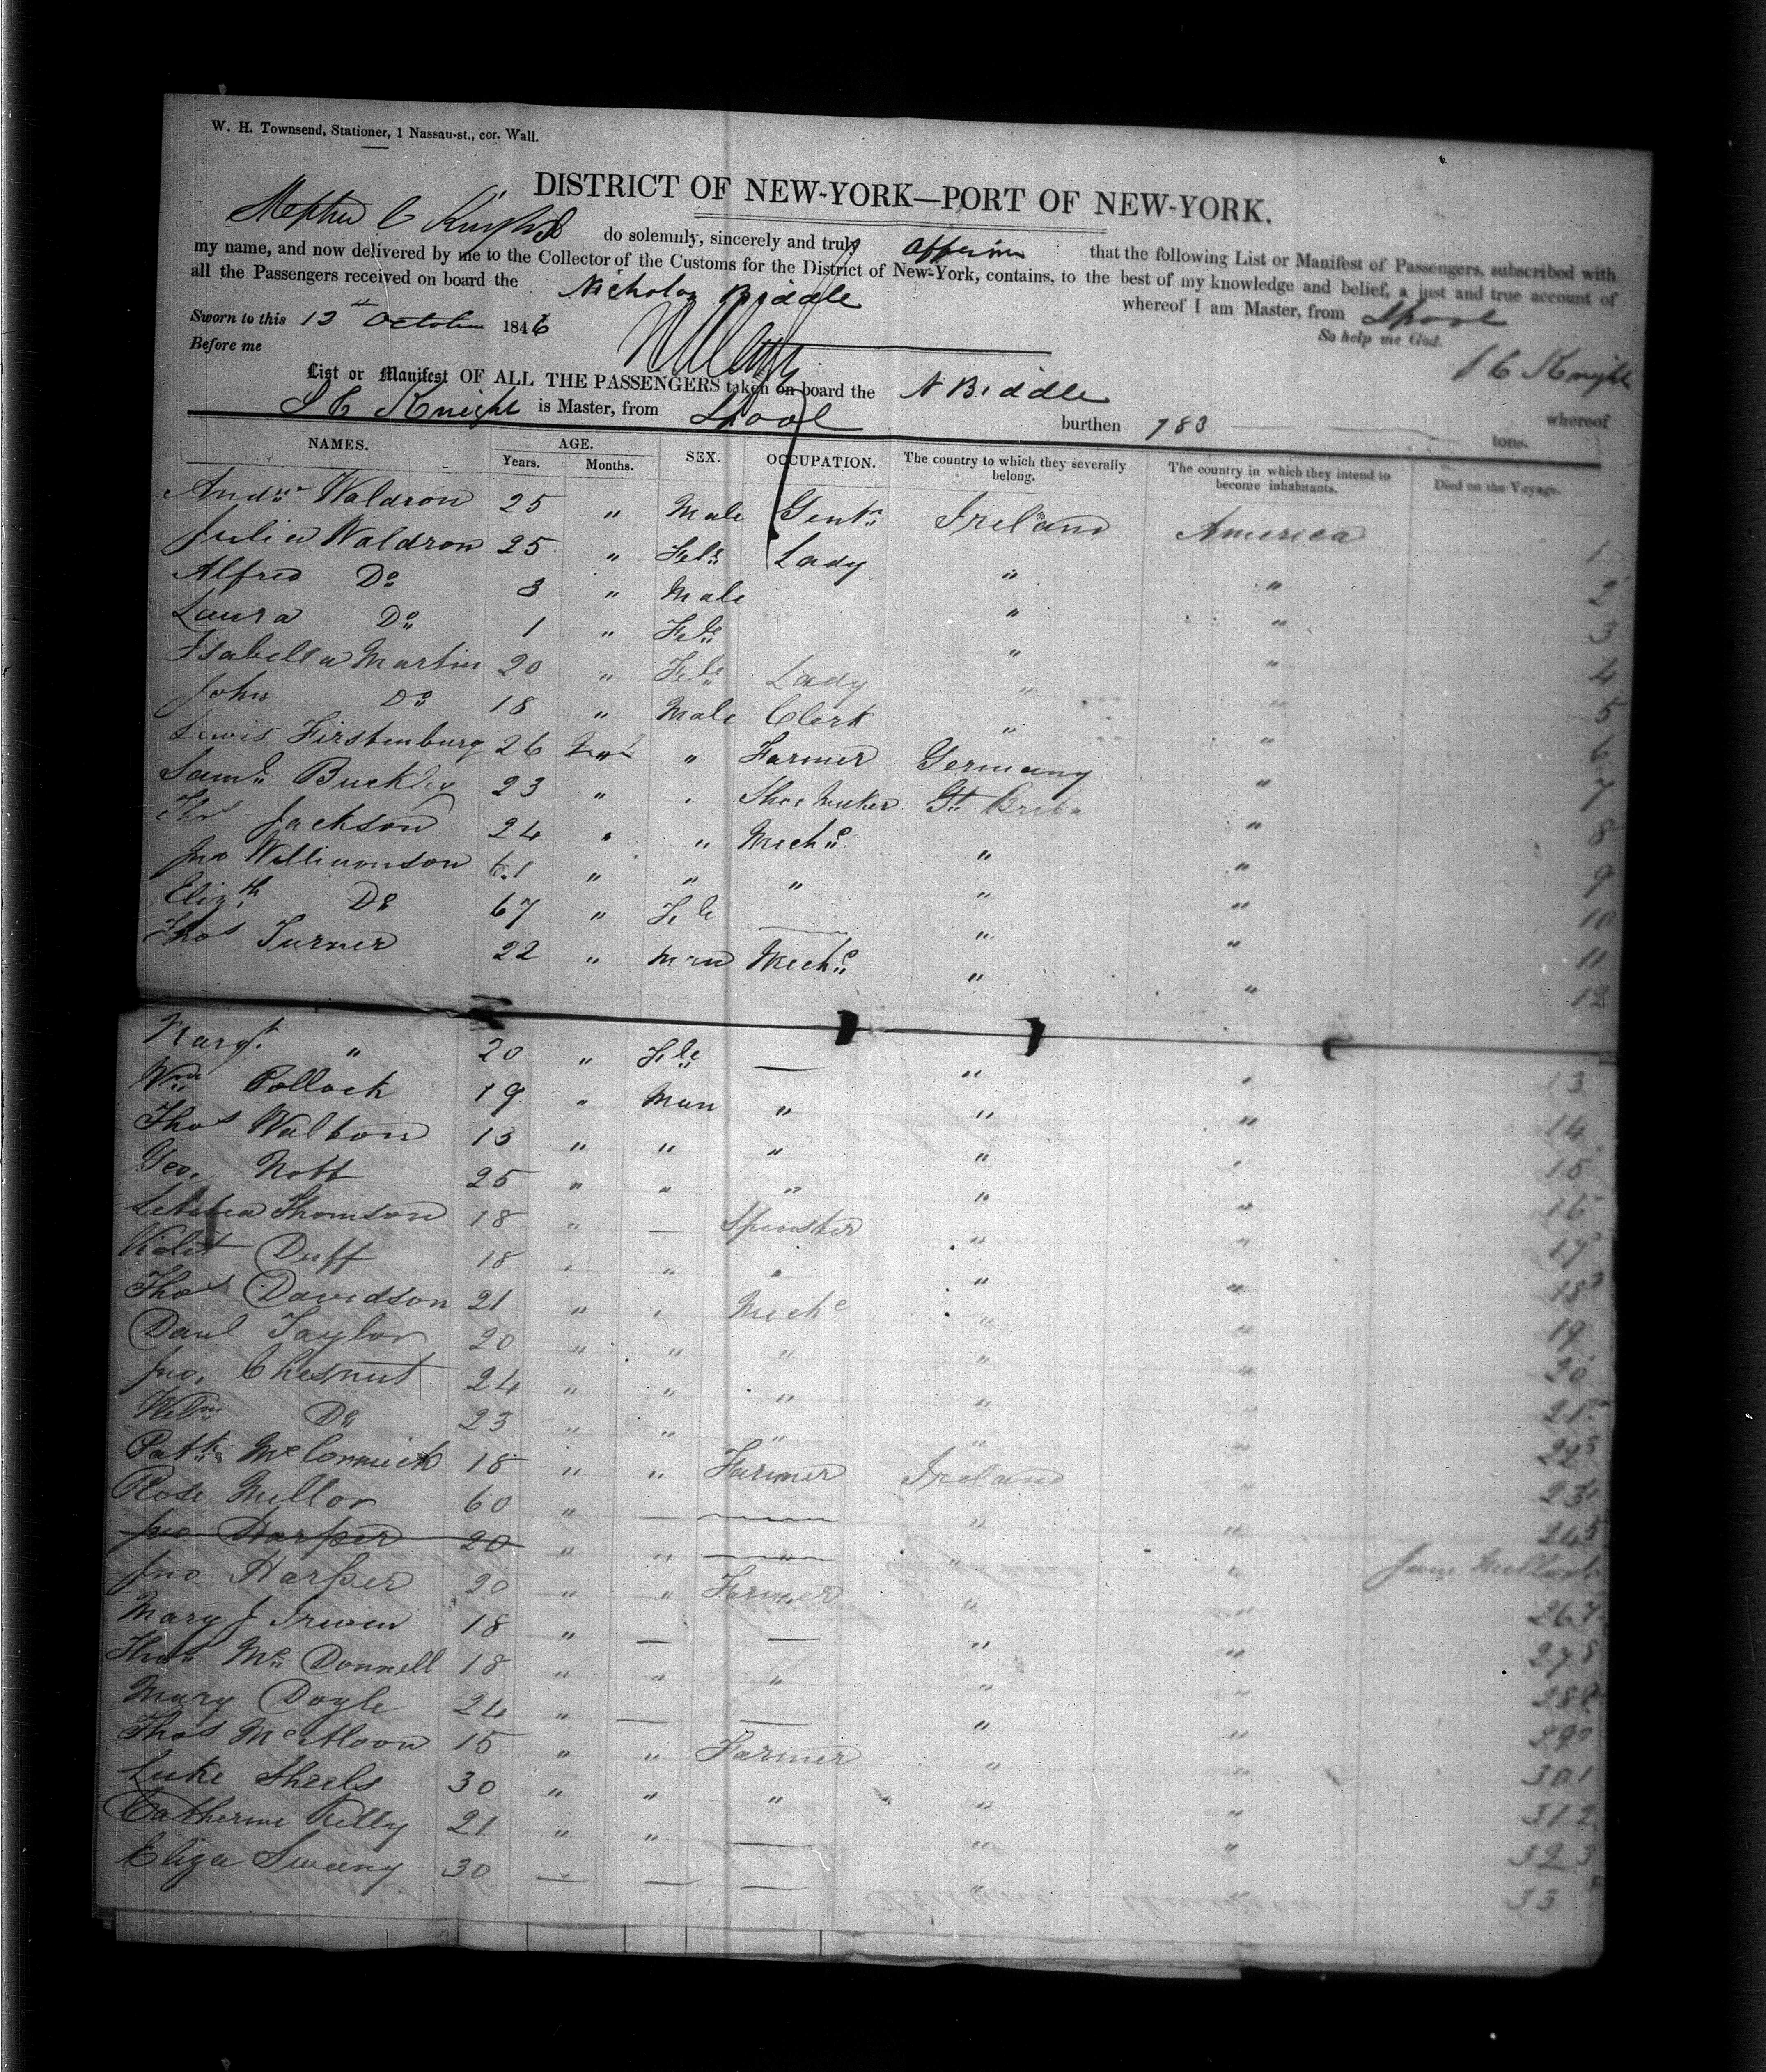 W. H. Townsend, Stationer, 1 Nassau-st., cor. Wall.
DISTRICT OF NEW-YORK—PORT OF NEW-YORK.
Stephen C Knight do solemnly, sincerely and truly affirm that the following List or Manifest of Passengers, subscribed with
my name, and now delivered by me to the Collector of the Customs for the District of New-York, contains, to the best of my knowledge and belief, a just and true account of
all the Passengers received on board the Nicholas Biddle whereof I am Master, from Lpool
Sworn to this 13th October 1846 So help me God.
Before me S C Knight
List or Manifest OF ALL THE PASSENGERS taken on board the N Biddle whereof
S C Knight is Master, from Lpool burthen 783 tons.
NAMES. AGE. Years. Months. SEX. OCCUPATION. The country to which they severally belong. The country in which they intend to become inhabitants. Died on the Voyage.
Andw Waldron 25 " Male Gentn Ireland America 1
Julia Waldron 25 " Fele Lady " " 2
Alfred Do 3 " Male " " 3
Laura Do 1 " Fele " " 4
Isabella Martin 20 " Fele Lady " " 5
John Do 18 " Male Clerk " " 6
Lewis Firstenburg 26 " Farmer Germany " 7
Saml Buckley 23 " " Shoemaker Gt Brita " 8
Thos Jackson 24 " " Mechc " " 9
Jno Williamson 61 " " " " " 10
Elizth Do 67 " Fele — " " 11
Thos Turner 22 " Man Mechc " " 12
Margt " 20 " Fele — " " 13
Wm Pollock 19 " Man " " " 14
Thos Walton 13 " " " " " 15
Geo. Nott 25 " " " " " 16
Letitia Thomson 18 " — Spinster " " 17
Violet Duff 18 " " " " " 18
Thos Davidson 21 " " Mechc " " 19
Danl Taylor 20 " " " " " 20
Jno. Chesnut 24 " " " " " 21
Willm Do 23 " " " " " 22
Patk McCormick 18 " " Farmer Ireland " 23
Rose Mellor 60 " — — " " 24
Jno Harper 20 " " — " " Jane
Jno Harper 20 " " Farmer " " 26
Mary J Irwin 18 " — — " " 27
Thos McDonnell 18 " " " " " 28
Mary Doyle 24 " — — " " 29
Thos McAloon 15 " " Farmer " " 30
Luke Sheels 30 " " " " " 31
Catherine Kelly 21 " " — " " 32
Eliza Sweeny 30 — — — " " 33